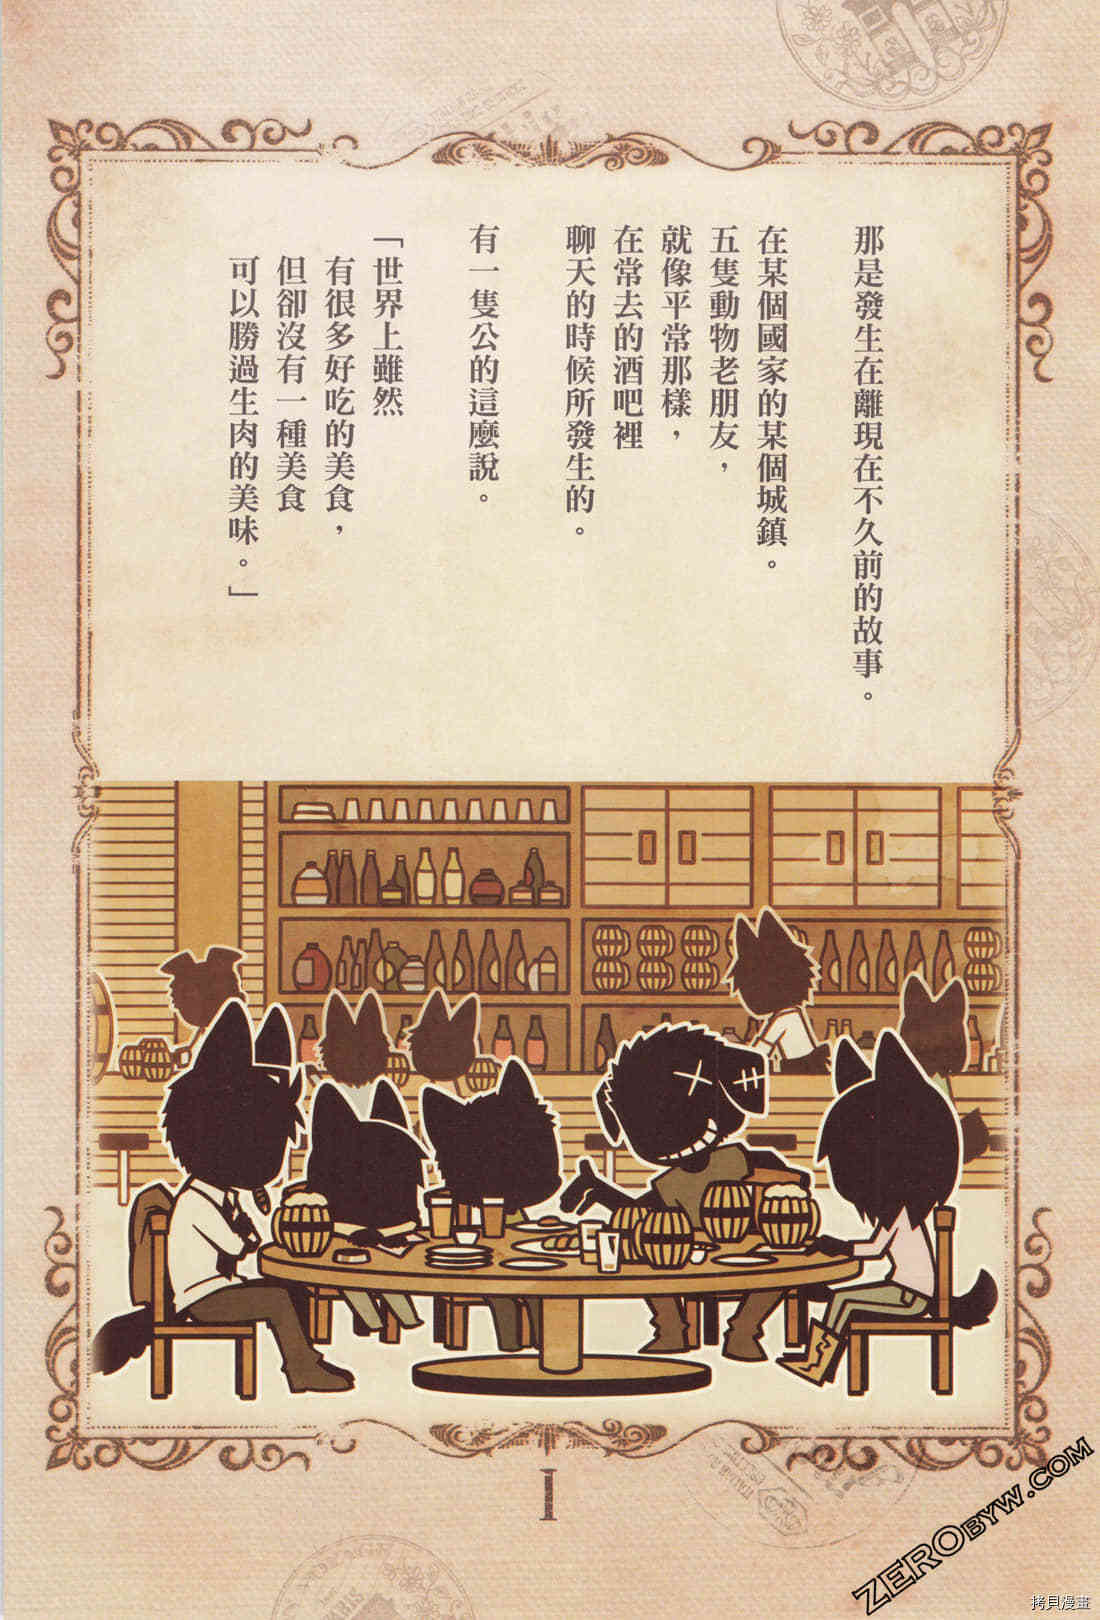 那是發生在離現在不久前的故事。
在某個國家的某個城鎮。
五隻動物老朋友，
就像平常那樣，
在常去的酒吧裡
聊天的時候所發生的。
有一隻公的這麼說。
「世界上雖然
有很多好吃的美食，
但卻沒有一種美食
可以勝過生肉的美味。」
1
ZEROBYW.COM
拷貝漫畫